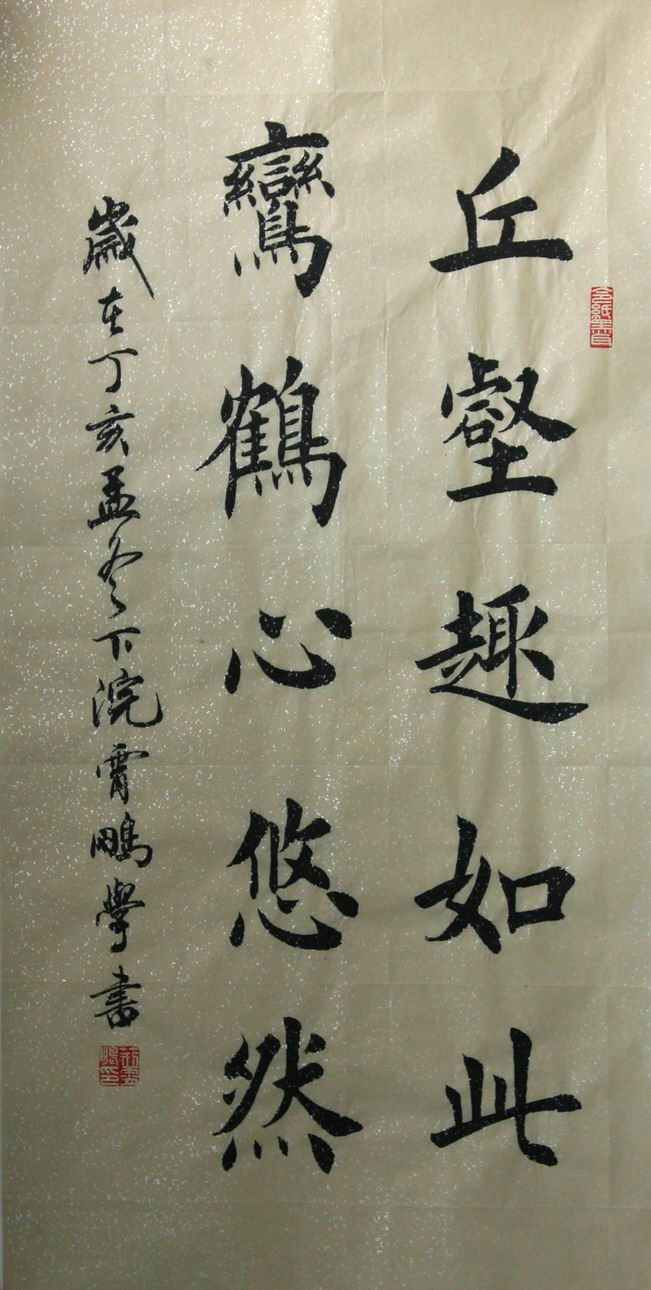 丘壑趣如此
鸞鶴心悠然
歲在丁亥孟冬下浣霄鵬學書